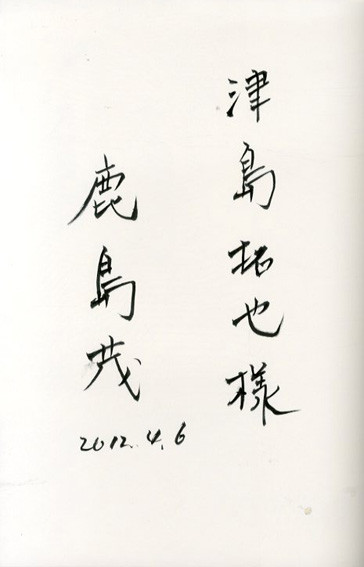 津島拓也様
鹿島茂
2012.4.6